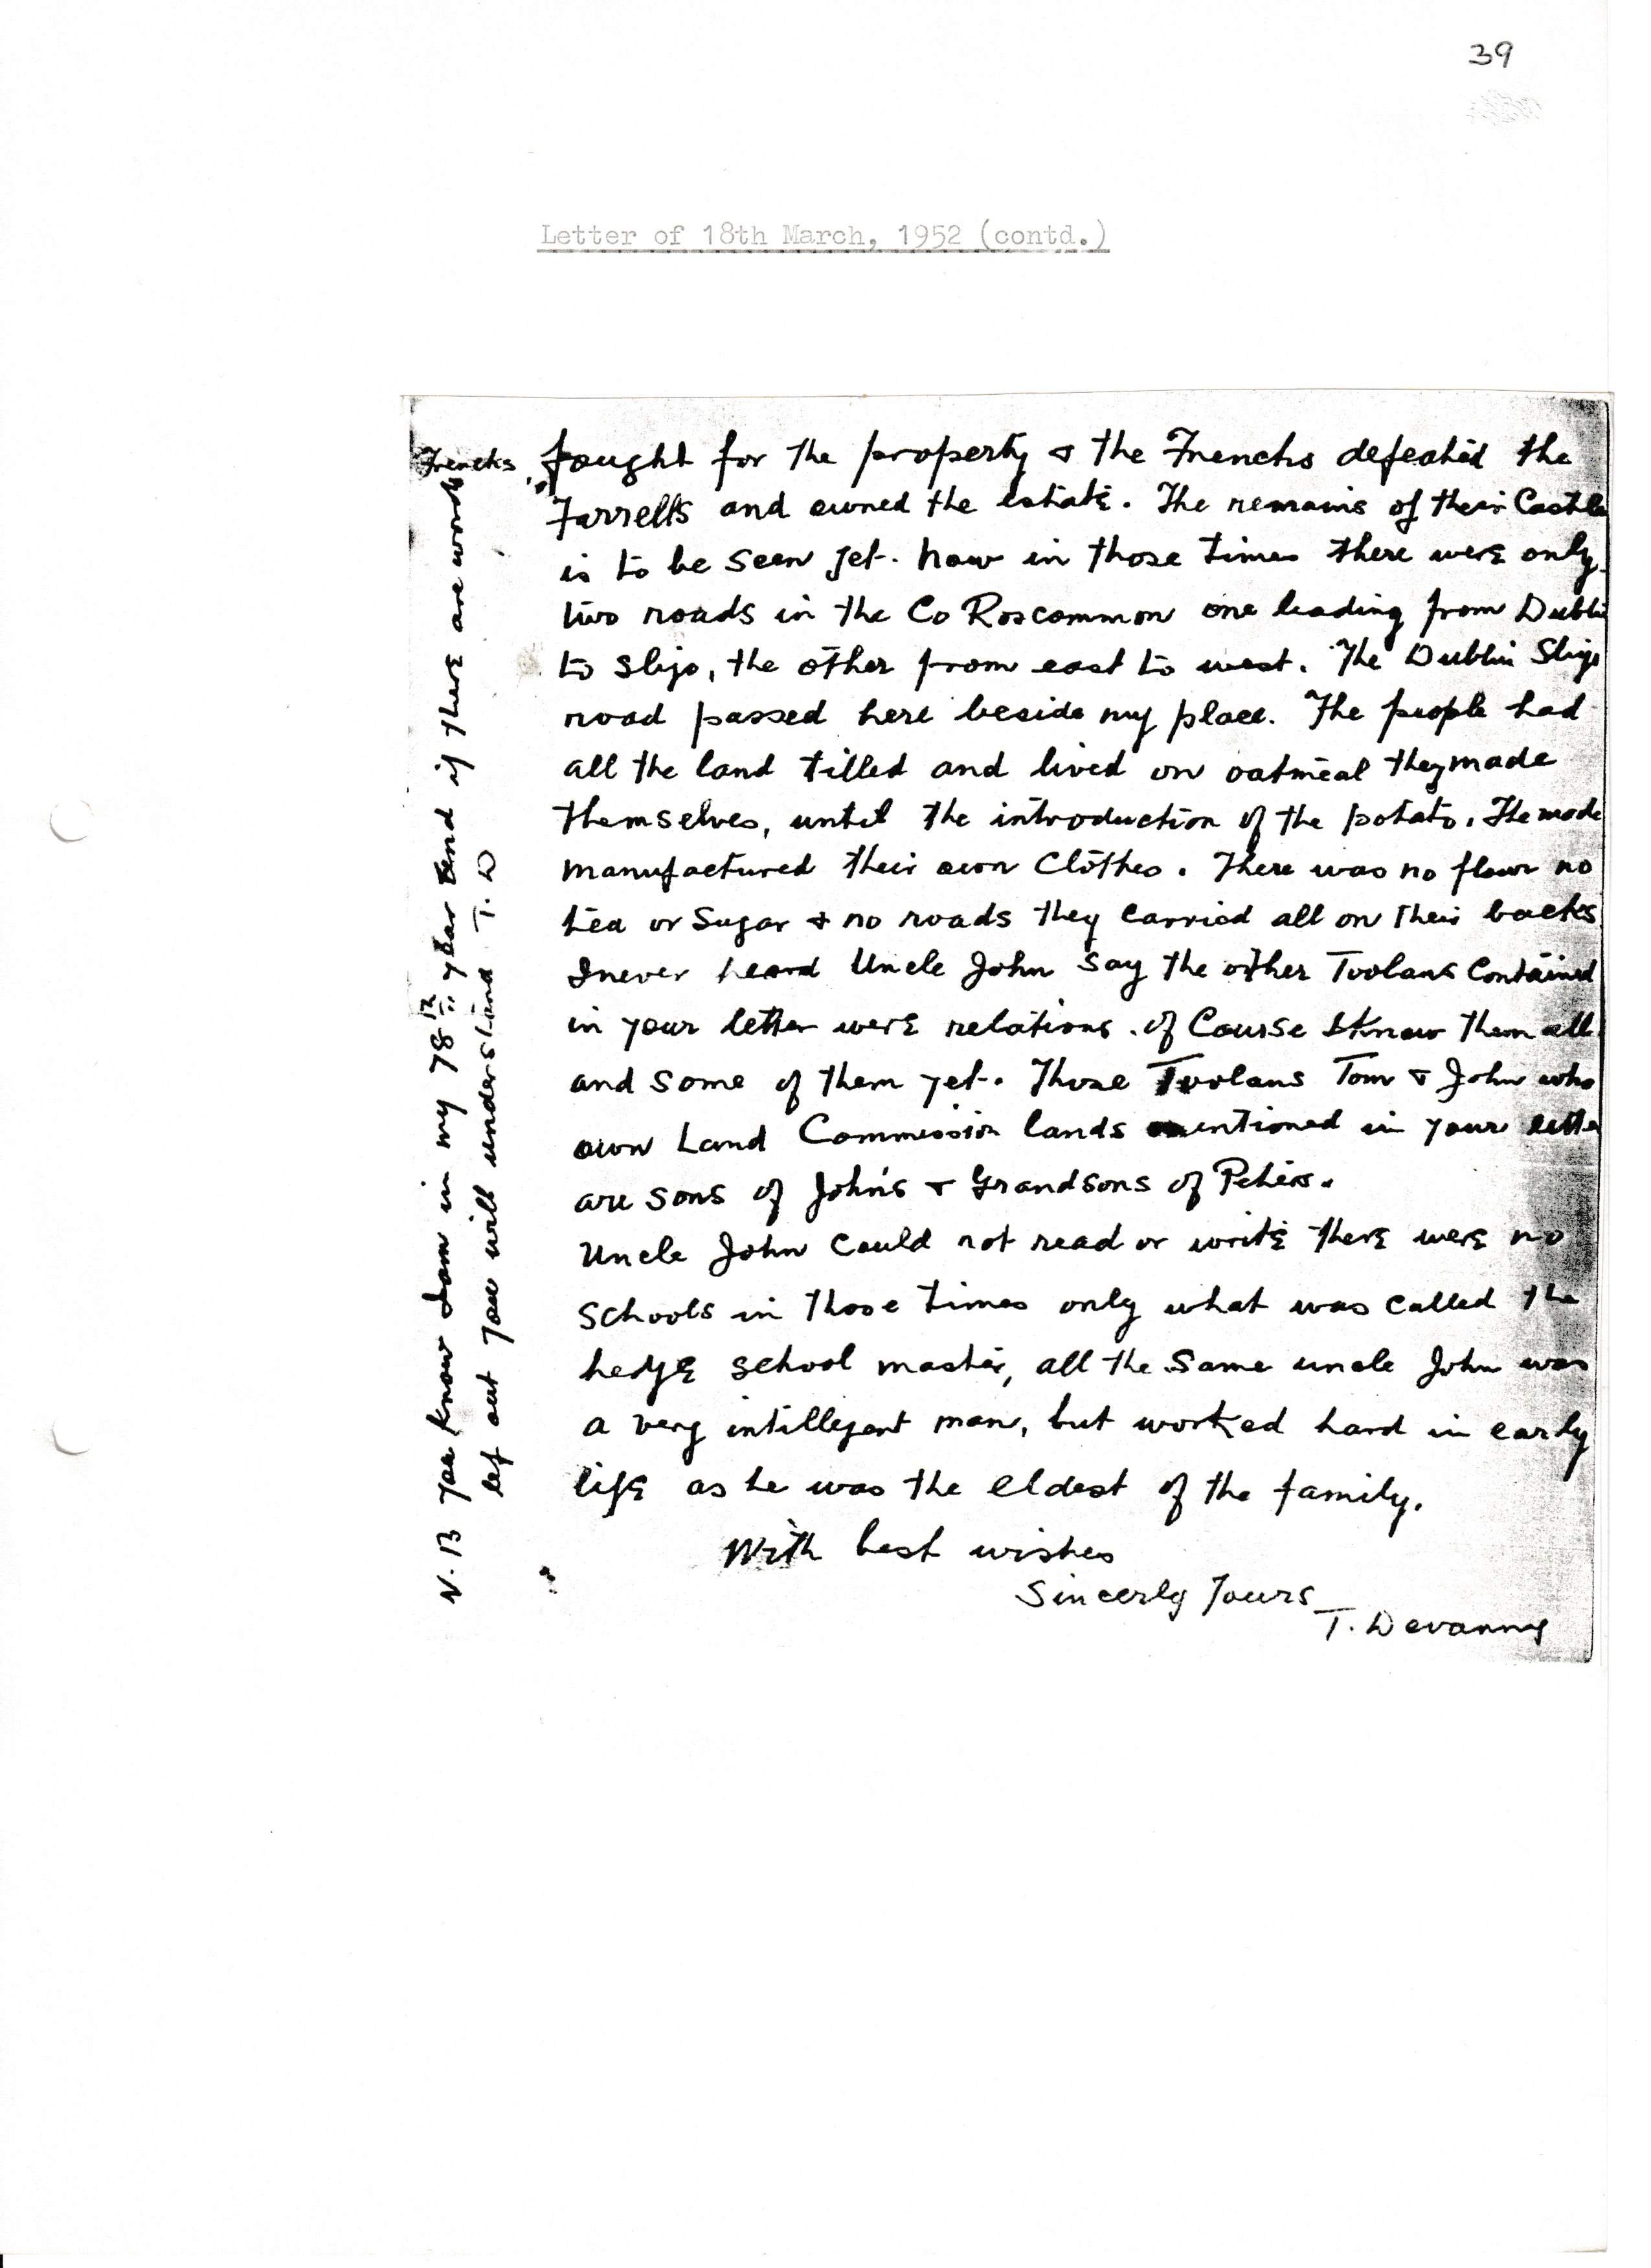 39
Letter of 18th March, 1952 (contd.)
Frenchs, fought for the property & the Frenchs defeated the
Farrells and owned the estate. The remains of their Castle
is to be seen yet. Now in those times there were only
two roads in the Co Roscommon one leading from Dublin
to Sligo, the other from east to west. The Dublin Sligo
road passed here beside my place. The people had
all the land tilled and lived on oatmeal they made
themselves, until the introduction of the potato. The made
manufactured their own Clothes. There was no flour no
tea or Sugar & no roads they carried all on their backs
I never heard Uncle John Say the other Toolans Contained
in your letter were relations. of Course I know them all
and some of them yet. Those Toolans Tom & John who
own Land Commission lands mentioned in your letter
are sons of John's & Grandsons of Peters.
Uncle John Could not read or write there were no
Schools in those times only what was called the
hedge school master, all the Same uncle John was
a very intillegent man, but worked hard in early
life as he was the eldest of the family.
With best wishes
Sincerly Yours
T. Devanny
N.B You know I am in my 78th year and if there are words
lef out you will understand T. D